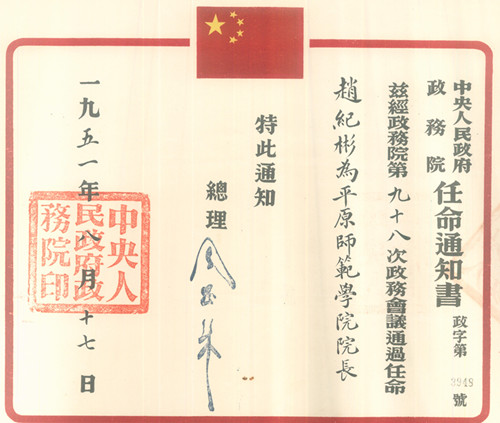 中央人民政府
政務院
任命通知書
政字第3948號
茲經政務院第九十八次政務會議通過任命
趙紀彬為平原師範學院院長
特此通知
總理 周恩來
一九五一年八月十七日
中央人
民政府政
務院印